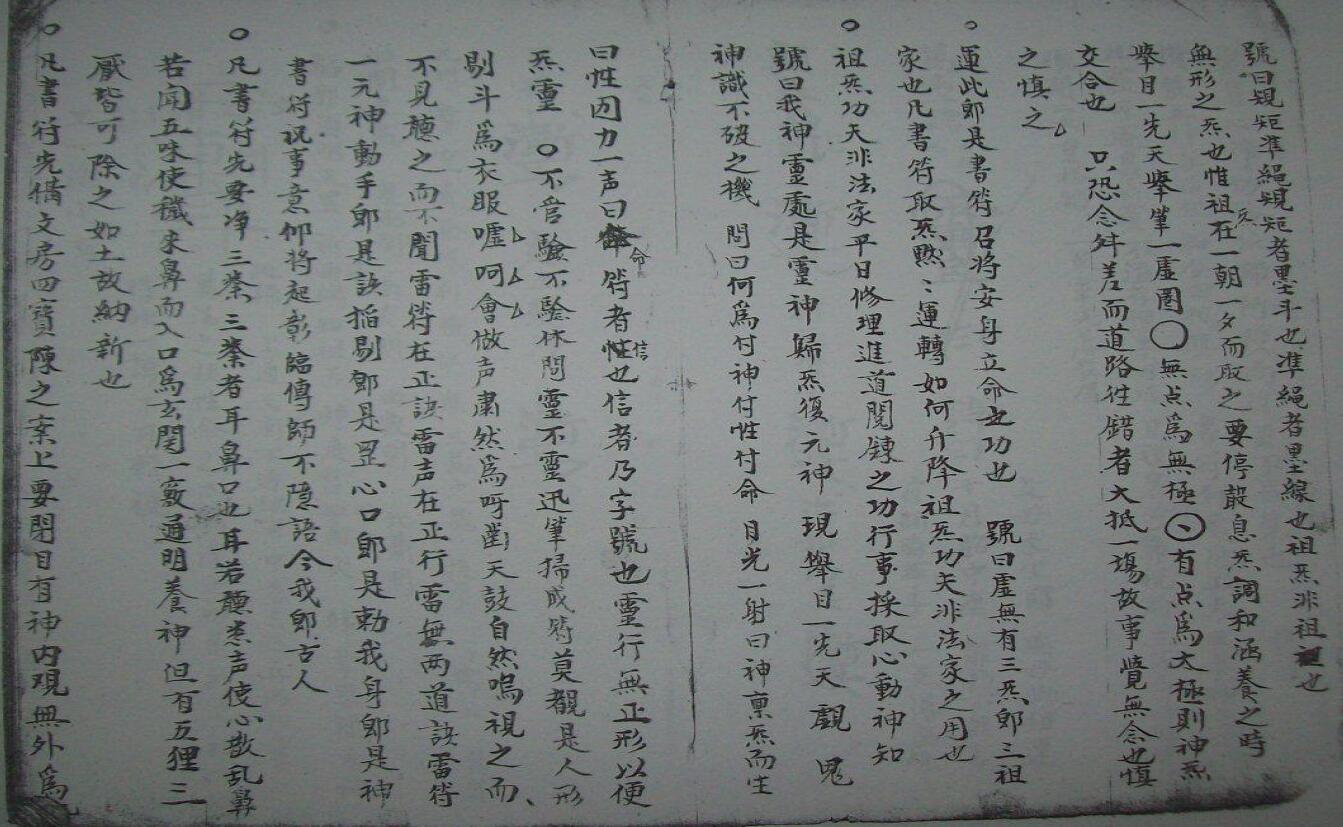 號曰規矩準繩規矩者墨斗也準繩者墨線也祖炁非祖祖也
無形之炁也惟祖在一朝一夕而取之要停散息炁調和涵養之時
舉目一先天舉筆一虛圈〇無点為無極⊙有点為太極則神炁
交合也 只恐念舛差而道路徃錯者大抵一塲故事覺無念也慎
之慎之
○運此即是書符召將安身立命之功也 號曰虛無有三炁即三祖
家也凡書符取炁黙〻運轉如何升降祖炁功夫非法家之用也
○祖炁功夫非法家平日修理進道関鍊之功行事採取心動神知
號曰我神靈處是靈神歸炁復元神 現舉目一先天觀 鬼
神識不破之機 問曰何為付神付性付命 目光一射曰神禀炁而生
曰性因力一声曰命 符者信也信者乃字號也靈行無正形以便
炁靈 ○不管驗不驗休問靈不靈迅筆掃成符莫覩是人形
剔斗為衣服噓〻呵〻會做声肅然為呼鑿天鼓自然鳴視之而
不見聽之而不聞雷符在正訣雷声在正行雷無两道訣雷符
一元神動手即是訣搯剔即是罡心口即是勅我身即是神
書符祝事意仰將起彰臨傳師不隱語今我即古人
○凡書符先要净三業三業者耳鼻口也耳若聽悪声使心散乱鼻
若聞五味使穢来鼻而入口為玄関一竅通明養神但有五狸三
厭皆可除之如土故納新也
○凡書符先搆文房四寳陳之案上要閉目有神内观無外為